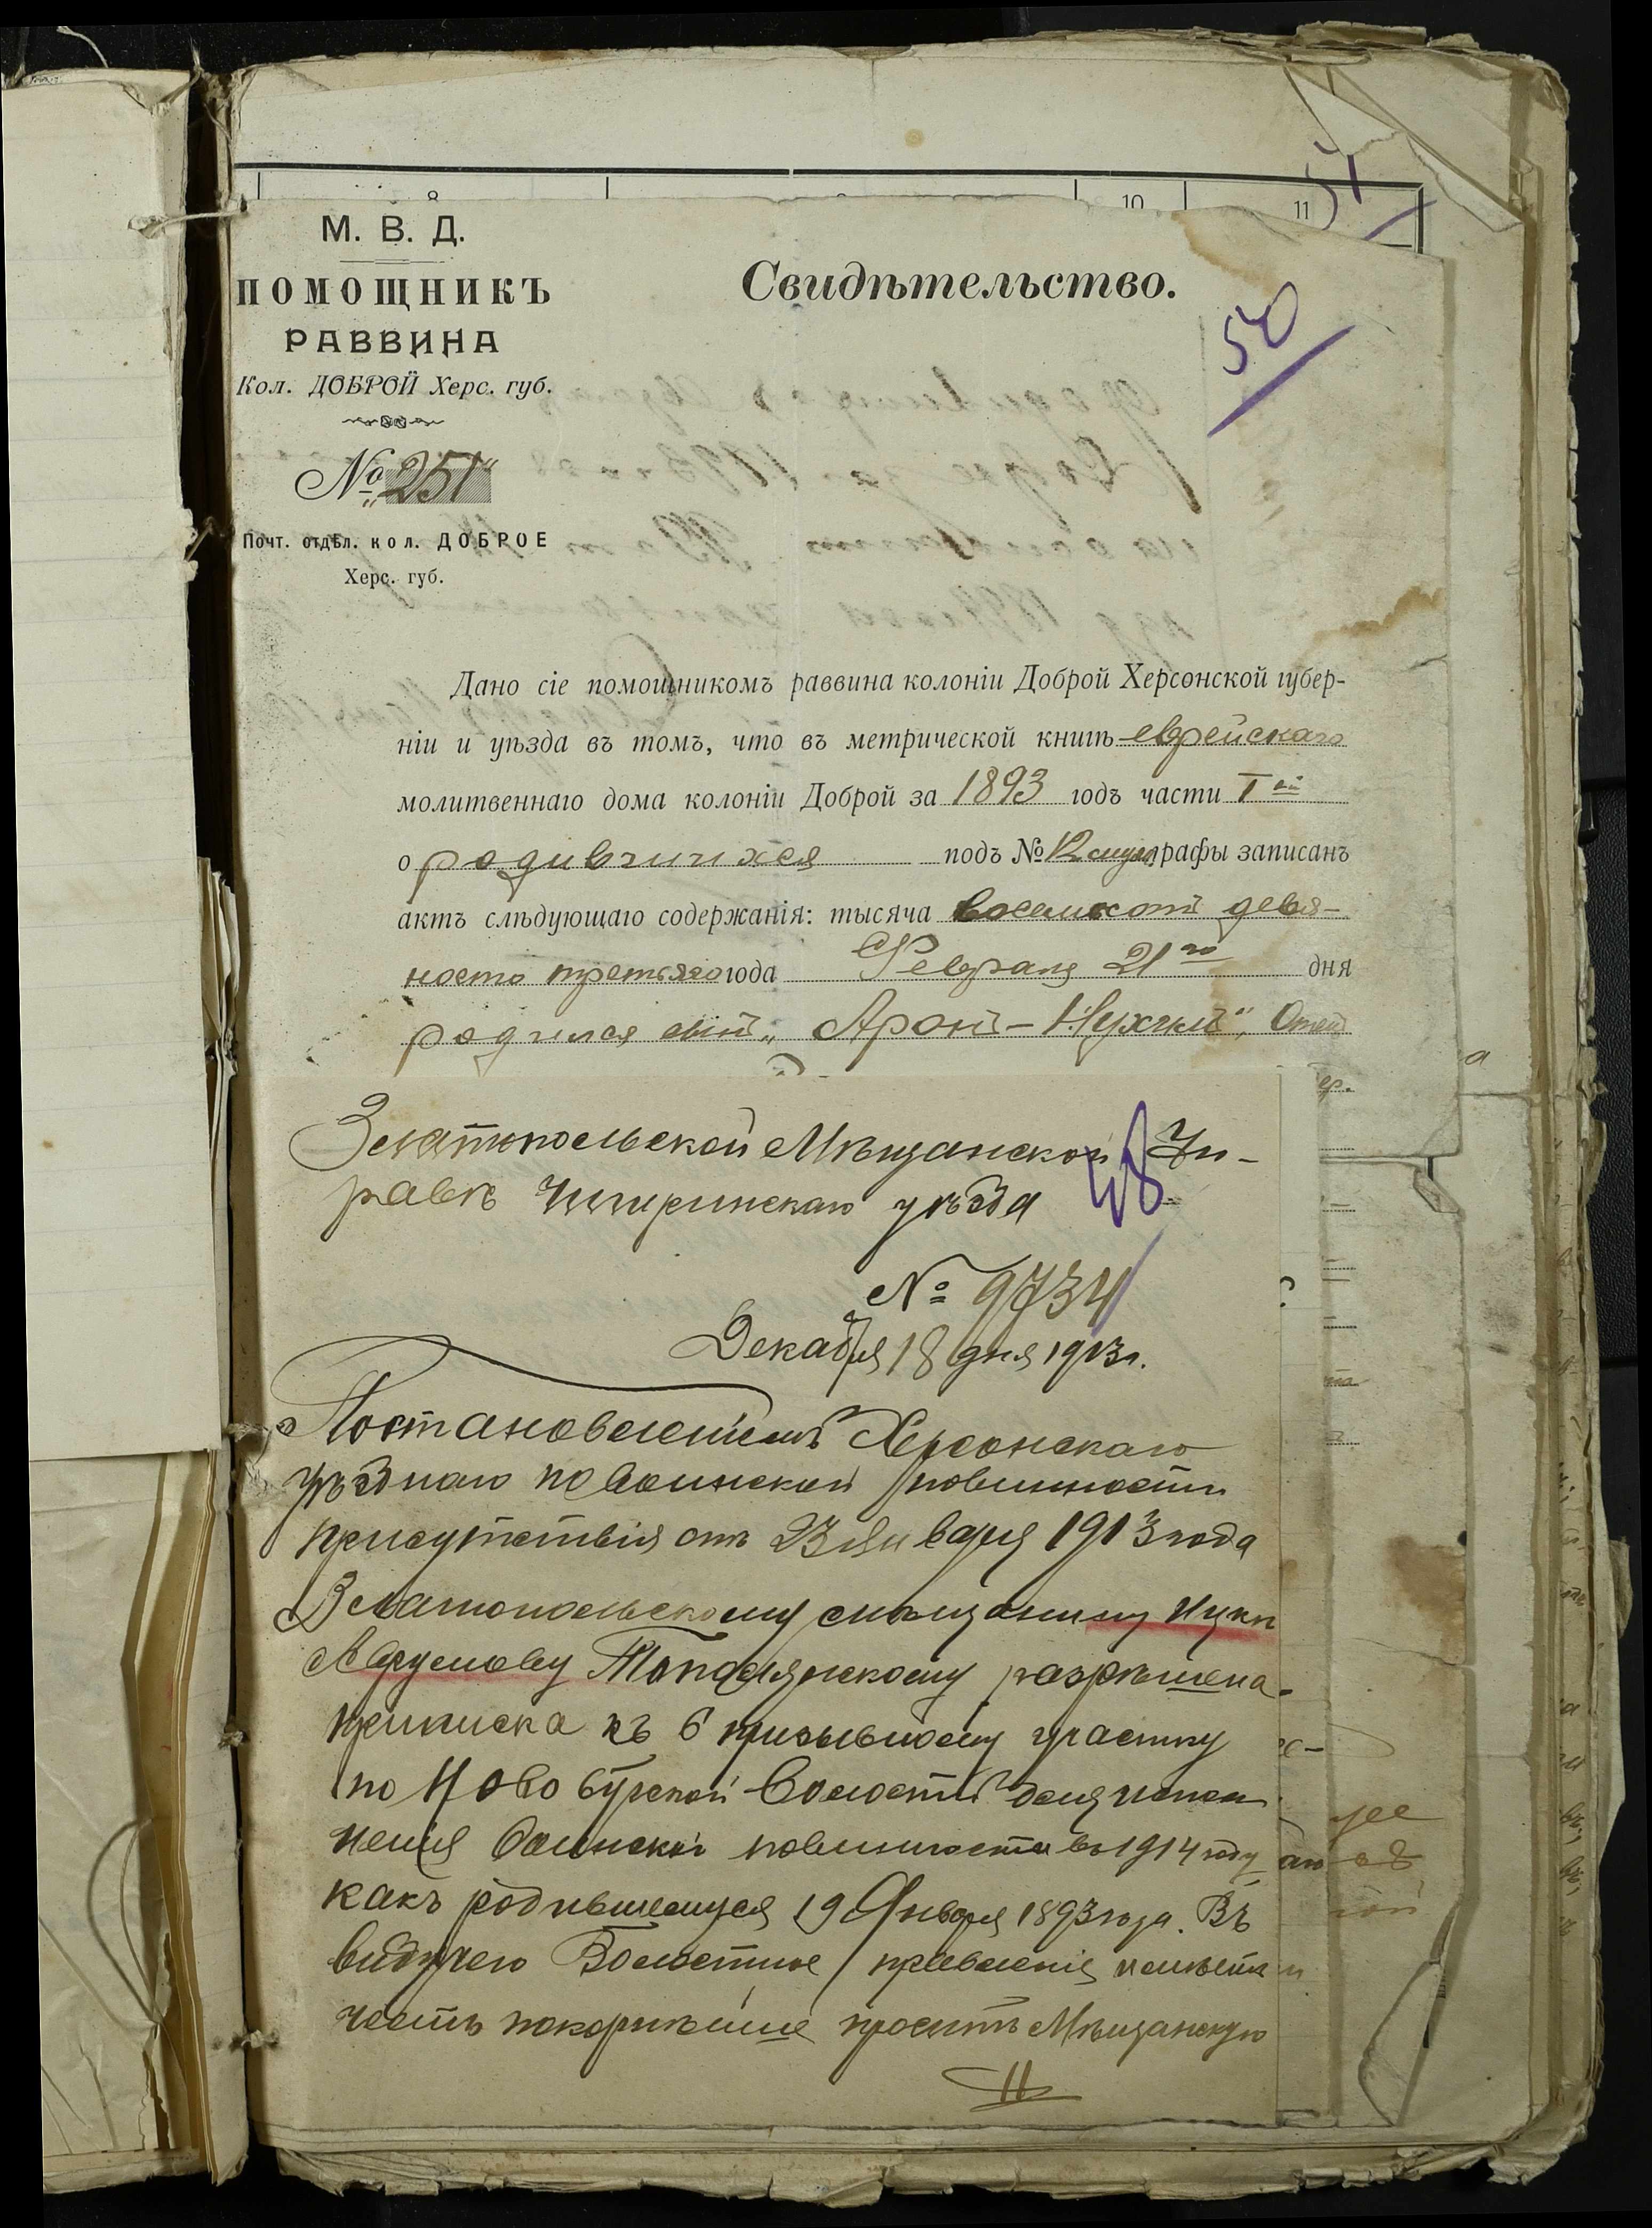 51
8
10
11
М. В. Д.
ПОМОЩНИКЪ
РАВВИНА
Кол. ДОБРОЙ Херс. губ.
№ 251
Почт. отдѣл. кол. ДОБРОЕ
Херс. губ.
Свидѣтельство.
50
Дано сіе помощникомъ раввина колоніи Доброй Херсонской губер-
ніи и уѣзда въ томъ, что въ метрической книгѣ еврейскаго
молитвеннаго дома колоніи Доброй за 1893 годъ части I ой
о родившихся подъ № 12 графы записанъ
актъ слѣдующаго содержанія: тысяча восемьсотъ девя-
носто третьяго года Февраля 21 го дня
родился сынъ „Аронъ-Нухимъ", Отецъ
Златопольской Мѣщанской Уп-
равѣ Чигиринскаго уѣзда
48
№ 9734
Декабря 18 дня 1913 г.
Постановленіемъ Херсонскаго
уѣзднаго по воинской повинности
присутствія отъ 23 Января 1913 года
Златопольскому мѣщанину Ицкѣ
Аврумову Тополянскому разрѣшена
приписка къ 6 призывному участку
по Ново Бугской волости для испол
ненія воинской повинности въ 1914 году
какъ родившемуся 19 Января 1893 года. Въ
виду чего Волостное правленіе имѣетъ
честь покорнѣйше просить Мѣщанскую